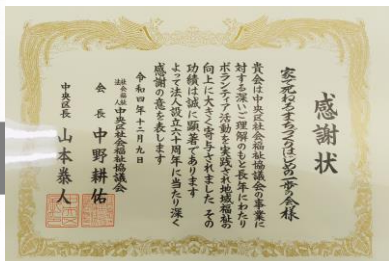 感謝状
家で死ねるまちづくりはじめの一歩の会様
貴会は中央区社会福祉協議会の事業に
対する深いご理解のもと長年にわたり
ボランティア活動を実践され地域福祉の
向上に大きく寄与されました その
功績は誠に顕著であります
よって法人設立六十周年に当たり深く
感謝の意を表します
令和四年十二月九日
社会福祉法人 中央区社会福祉協議会
会長 中野耕佑
中央区長 山本泰人